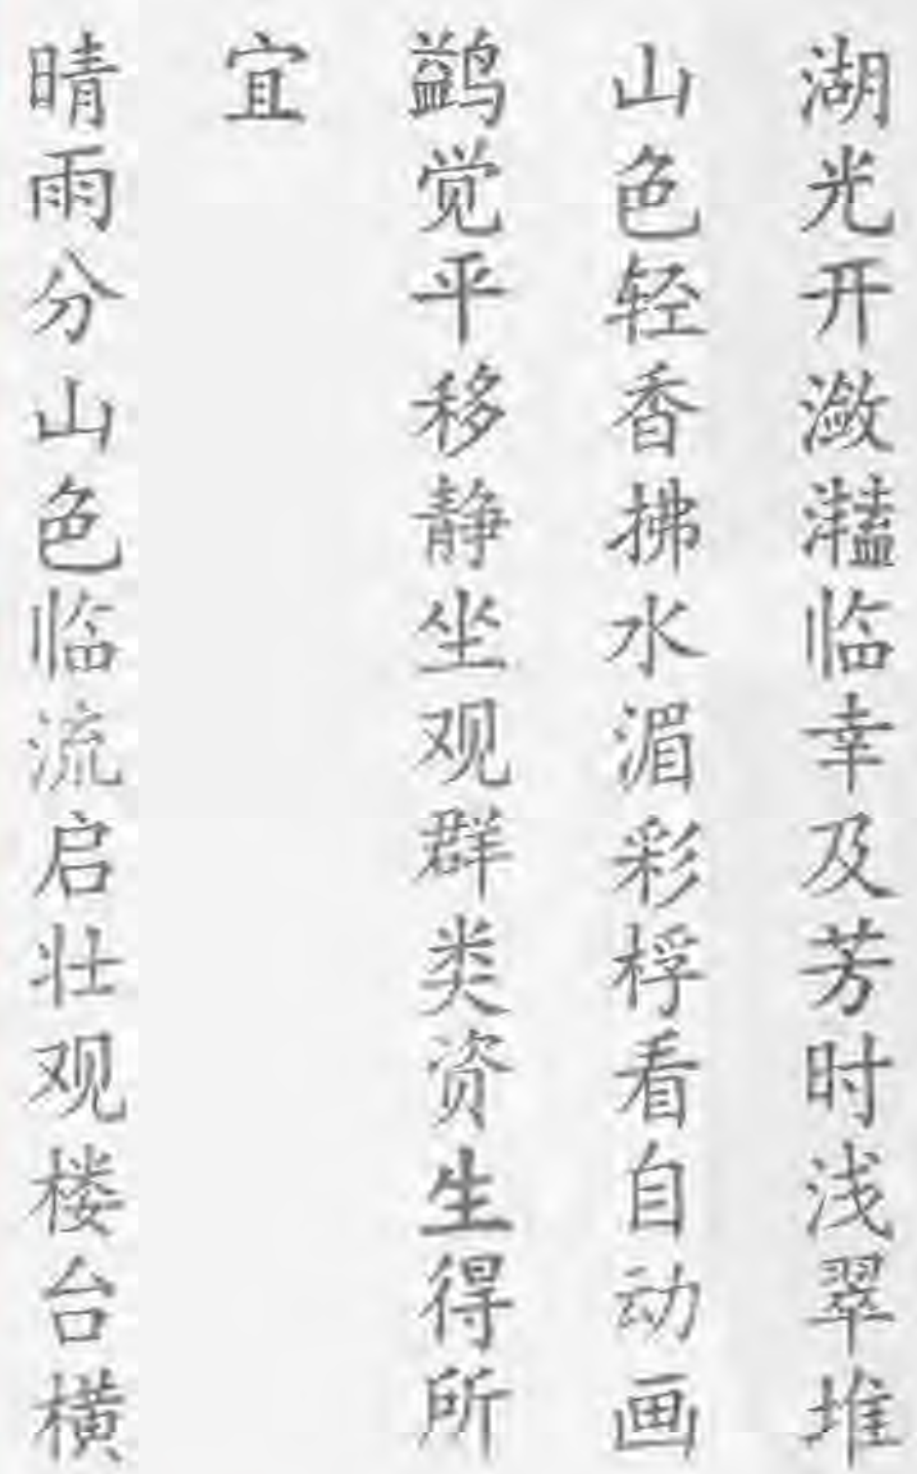 湖光开潋灩临幸及芳时浅翠堆
山色轻香拂水湄彩桴看自动画
鹢觉平移静坐观群类资生得所
宜
晴雨分山色临流启壮观楼台横